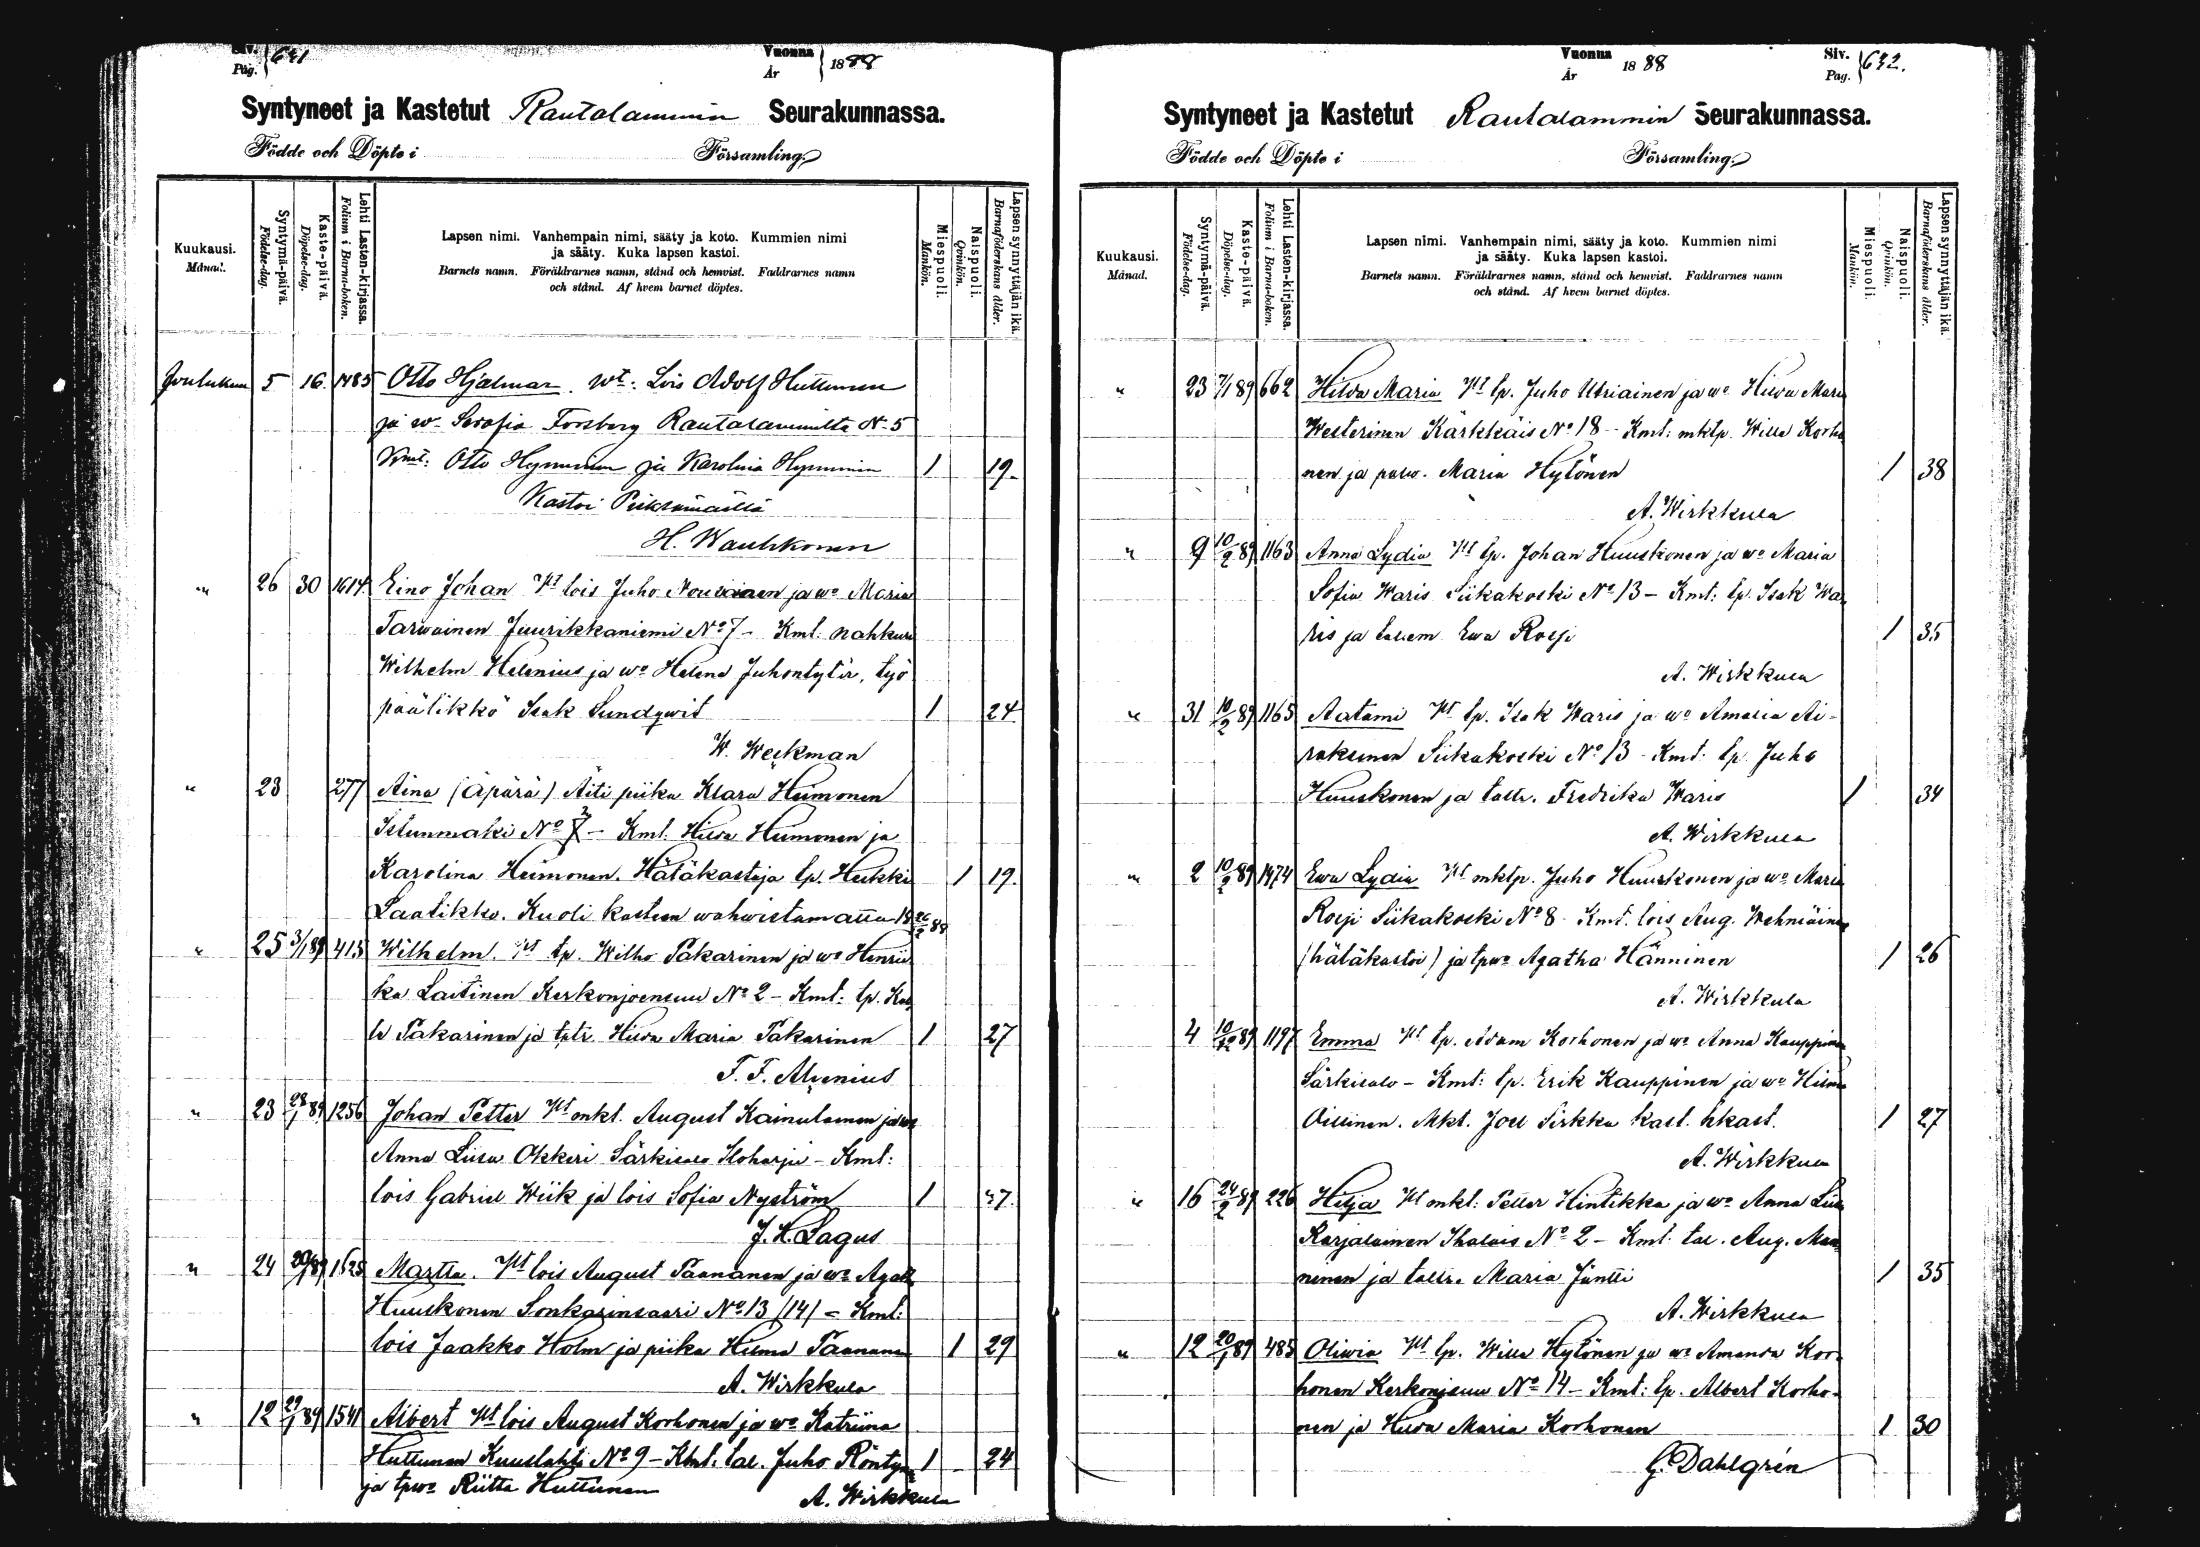 Siv. Pag. 641
Vuonna År 1888
Syntyneet ja Kastetut Rautalammin Seurakunnassa.
Födde och Döpte i Församling.
Kuukausi. Månad.
Syntymä-päivä. Födelse-dag.
Kaste-päivä. Döpelse-dag.
Lehti Lasten-kirjassa. Folium i Barna-boken.
Lapsen nimi. Vanhempain nimi, sääty ja koto. Kummien nimi
ja sääty. Kuka lapsen kastoi.
Barnets namn. Föräldrarnes namn, stånd och hemvist. Faddrarnes namn
och stånd. Af hvem barnet döptes.
Miespuoli. Mankön.
Naispuoli. Qvinkön.
Lapsen synnyttäjän ikä. Barnaföderskans ålder.
Joulukuu 5 16 1485 Otto Hjalmar. Wt: Lois Adolf Huttunen
ja wo Serafia Forsberg Rautalammilta No 5
Kmt: Otto Hynninen ja Karolina Hynninen 1 19.
Kastoi Pieksämäellä
H. Wauhkonen
" 26 30 1614. Eino Johan Wt lois Juho Nousiainen ja wo Maria
Tarwainen Juurikkaniemi No 7 - Kmt. nahkuri
Wilhelm Helenius ja wo Helena Juhontytär, työ
päälikkö Isak Sundqwist 1 24.
W. Weckman
" 23 277 Aina (Äpärä) Äiti piika Klara Heimonen
Istunmäki No 7 2 - Kmt. Hilda Heimonen ja
Karolina Heimonen. Hätäkastaja tp. Heikki 1 19.
Laatikko. Kuoli kasteen wahwistamatta 18 26/2 88
" 25 3/1 89 413 Wilhelm. Wt tp. Wilho Pakarinen ja wo Henrii
ka Laitinen Kerkonjoensuu No 2 - Kmt: tp. Kal
le Pakarinen ja tptr. Hilda Maria Pakarinen 1 27
F. F. Alvenius
" 23 28/1 89 1256 Johan Petter Wt mkt. August Kainulainen ja wo
Anna Liisa Okkeri Särkisalo Iloharju - Kmt:
lois Gabriel Wiik ja lois Sofia Nyström 1 37.
J. H. Lagus
" 24 20/1 89 1625 Martta. Wt lois August Paananen ja wo Agata
Huuskonen Sonkarinsaari No 13 (14) - Kmt:
lois Jaakko Holm ja piika Hilma Paananen 1 29
A. Wirkkula
" 12 27/1 89 1541 Albert Wt lois August Korhonen ja wo Katriina
Huttunen Kuuslahti No 9 - Kmt. tal. Juho Röntynen 1 24
ja tpwo Riitta Huttunen
A. Wirkkula
Vuonna År 1888
Siv. Pag. 642.
Syntyneet ja Kastetut Rautalammin Seurakunnassa.
Födde och Döpte i Församling.
Kuukausi. Månad.
Syntymä-päivä. Födelse-dag.
Kaste-päivä. Döpelse-dag.
Lehti Lasten-kirjassa. Folium i Barna-boken.
Lapsen nimi. Vanhempain nimi, sääty ja koto. Kummien nimi
ja sääty. Kuka lapsen kastoi.
Barnets namn. Föräldrarnes namn, stånd och hemvist. Faddrarnes namn
och stånd. Af hvem barnet döptes.
Miespuoli. Mankön.
Naispuoli. Qvinkön.
Lapsen synnyttäjän ikä. Barnaföderskans ålder.
" 23 7/1 89 662 Hilda Maria Wt tp. Juho Utriainen ja wo Hilda Maria
Westerinen Kärkkäis No 18 - Kmt: mktp. Wille Korho
nen ja palw. Maria Hytönen 1 38
A. Wirkkula
" 9 10/2 89 1163 Anna Lydia Wt tp. Johan Huuskonen ja wo Maria
Sofia Waris Siikakoski No 13 - Kmt: tp. Isak Wa
ris ja talem. Ewa Rossi 1 35
A. Wirkkula
" 31 10/2 89 1165 Aatami Wt tp. Isak Waris ja wo Amalia Ai-
raksinen Siikakoski No 13 - Kmt: tp. Juho
Huuskonen ja taltr. Fredrika Waris 1 34
A. Wirkkula
" 2 10/2 89 1474 Ewa Lydia Wt mktp. Juho Huuskonen ja wo Maria
Rossi Siikakoski No 8 - Kmt. lois Aug. Wehmäinen
(hätäkastoi) ja tpwo Agatha Hänninen 1 26
A. Wirkkula
4 10/12 89 1197 Emma Wt tp. Adam Korhonen ja wo Anna Kauppinen
Särkisalo - Kmt: tp. Erik Kauppinen ja wo Hilma
Mkt. Joel Sirkka kast. hkast. 1 27
A. Wirkkula
" 16 24/2 89 226 Hilja Wt mkt: Petter Hintikka ja wo Anna Liisa
Karjalainen Ihalais No 2 - Kmt: tal. Aug. Man
ninen ja taltr. Maria Jäntti 1 35
A. Wirkkula
" 12 20/1 89 485 Oliwia Wt tp. Wille Hytönen ja wo Amanda Kor-
honen Kerkonjsuu No 14 - Kmt: tp. Albert Korho-
nen ja Hilda Maria Korhonen 1 30
G. Dahlgrén